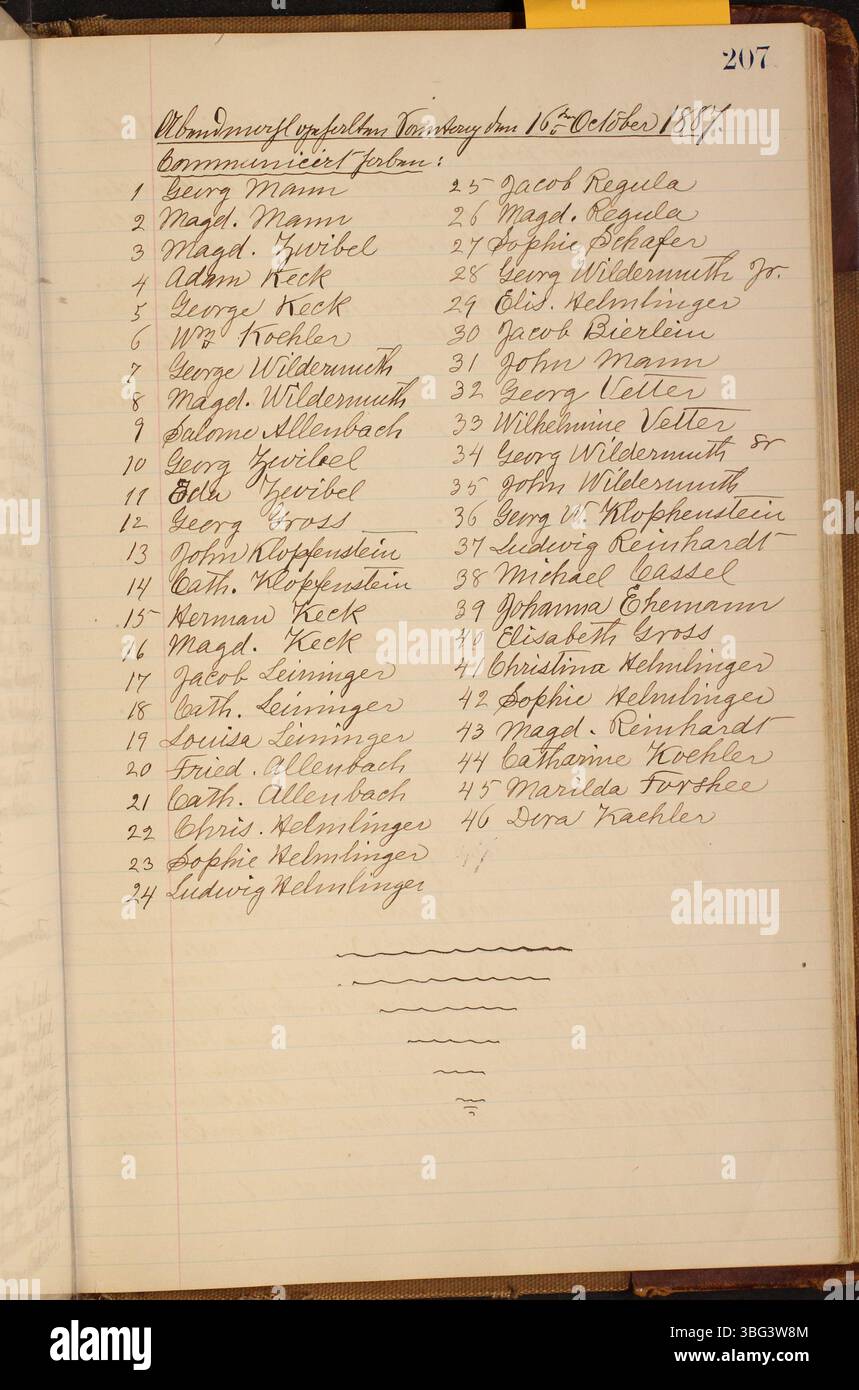 207
Abendmahl gehalten Sonntag den 16ten October 1887.
Communicirt haben:
1 Georg Mann
2 Magd. Mann
3 Magd. Zwibel
4 Adam Keck
5 George Keck
6 Wm Koehler
7 George Wildermuth
8 Magd. Wildermuth
9 Salome Allenbach
10 Georg Zwibel
11 Ida Zwibel
12 Georg Gross
13 John Klopfenstein
14 Cath. Klopfenstein
15 Herman Keck
16 Magd. Keck
17 Jacob Leininger
18 Cath. Leininger
19 Louisa Leininger
20 Fried. Allenbach
21 Cath. Allenbach
22 Chris. Helmlinger
23 Sophie Helmlinger
24 Ludwig Helmlinger
25 Jacob Regula
26 Magd. Regula
27 Sophie Schafer
28 Georg Wildermuth Jr.
29 Elis. Helmlinger
30 Jacob Bierlein
31 John Mann
32 Georg Vetter
33 Wilhelmine Vetter
34 Georg Wildermuth Sr
35 John Wildermuth
36 Georg W Klophenstein
37 Ludwig Reinhardt
38 Michael Cassel
39 Johanna Ehemann
40 Elisabeth Gross
41 Christina Helmlinger
42 Sophie Helmlinger
43 Magd. Reinhardt
44 Catharine Koehler
45 Marilda Forshee
46 Dora Kaehler
alamy
alamy
alamy
a
a
a
a
a
a
alamy
Image ID: 3BG3W8M
www.alamy.com